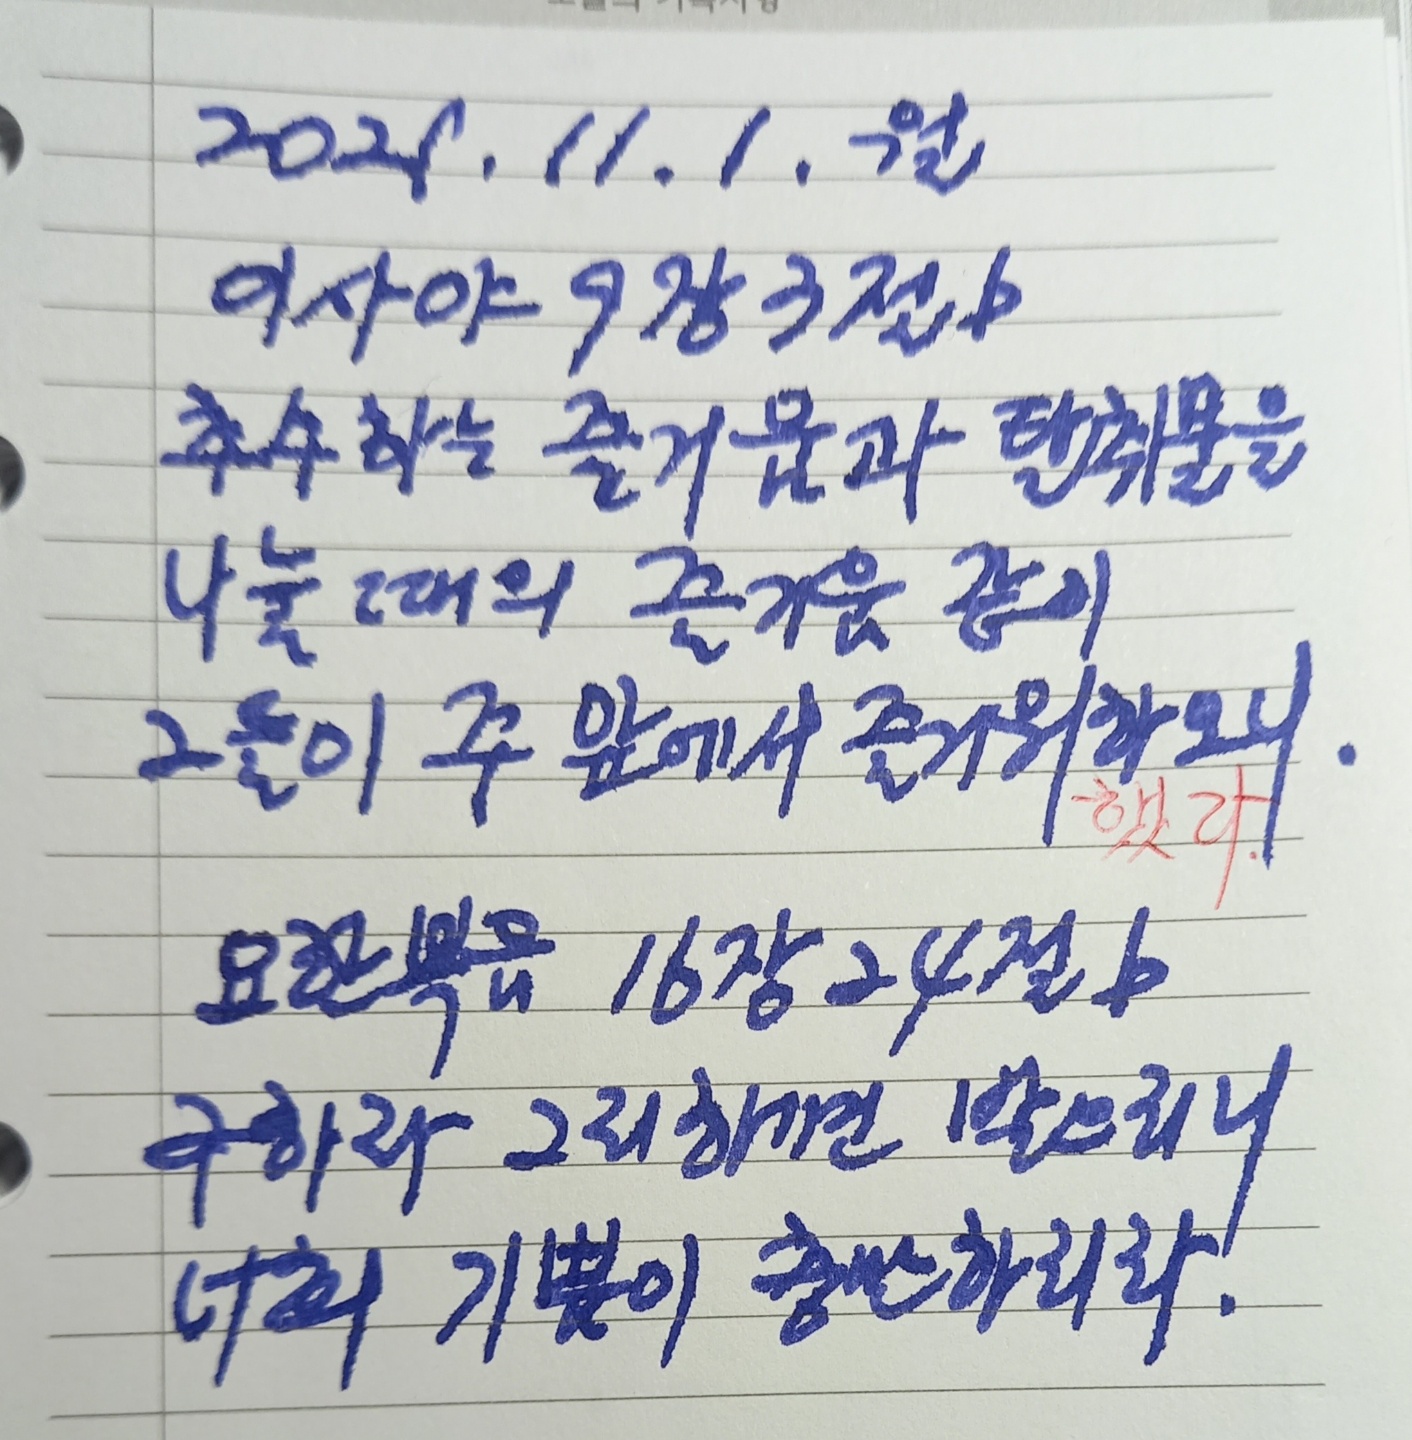 2021. 11. 1. 월
이사야 9장 3절b
추수하는 즐거움과 탈취물을
나눌 때의 즐거움 같이
그들이 주 앞에서 즐거워하오니.
했다.
요한복음 16장 24절b
구하라 그리하면 받으리니
너희 기쁨이 충만하리라.